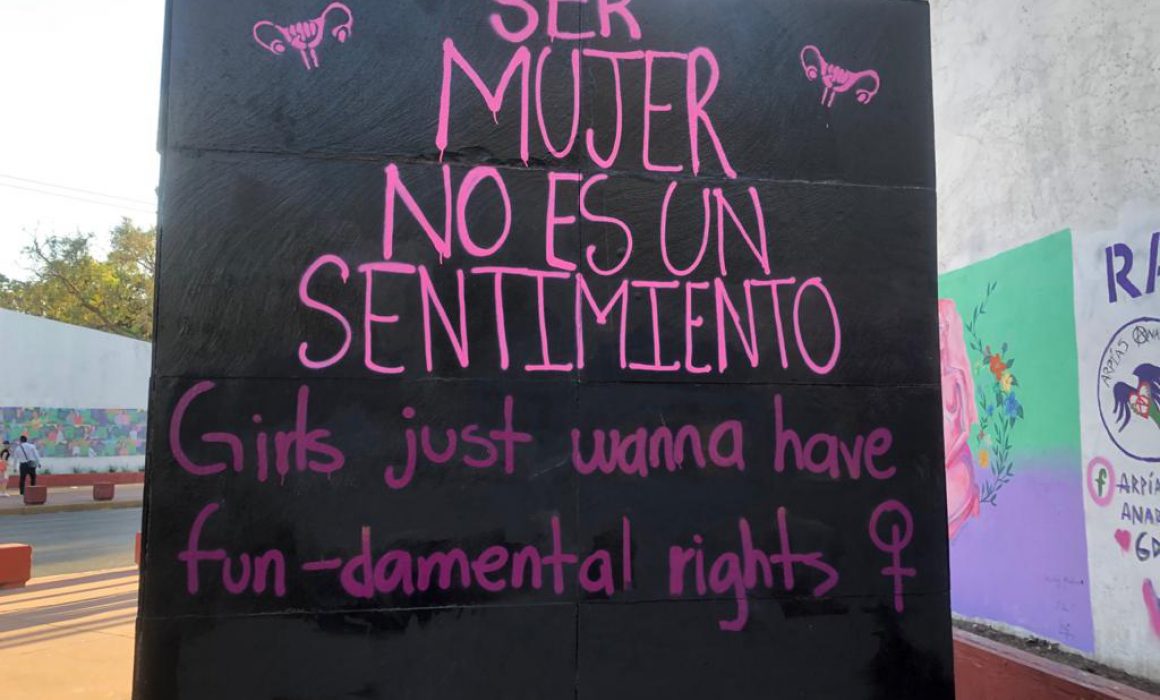 SER
MUJER
NO ES UN
SENTIMIENTO
Girls just wanna have
fun-damental rights
RA
ARPÍAS
ARPÍA
ANAR
GD